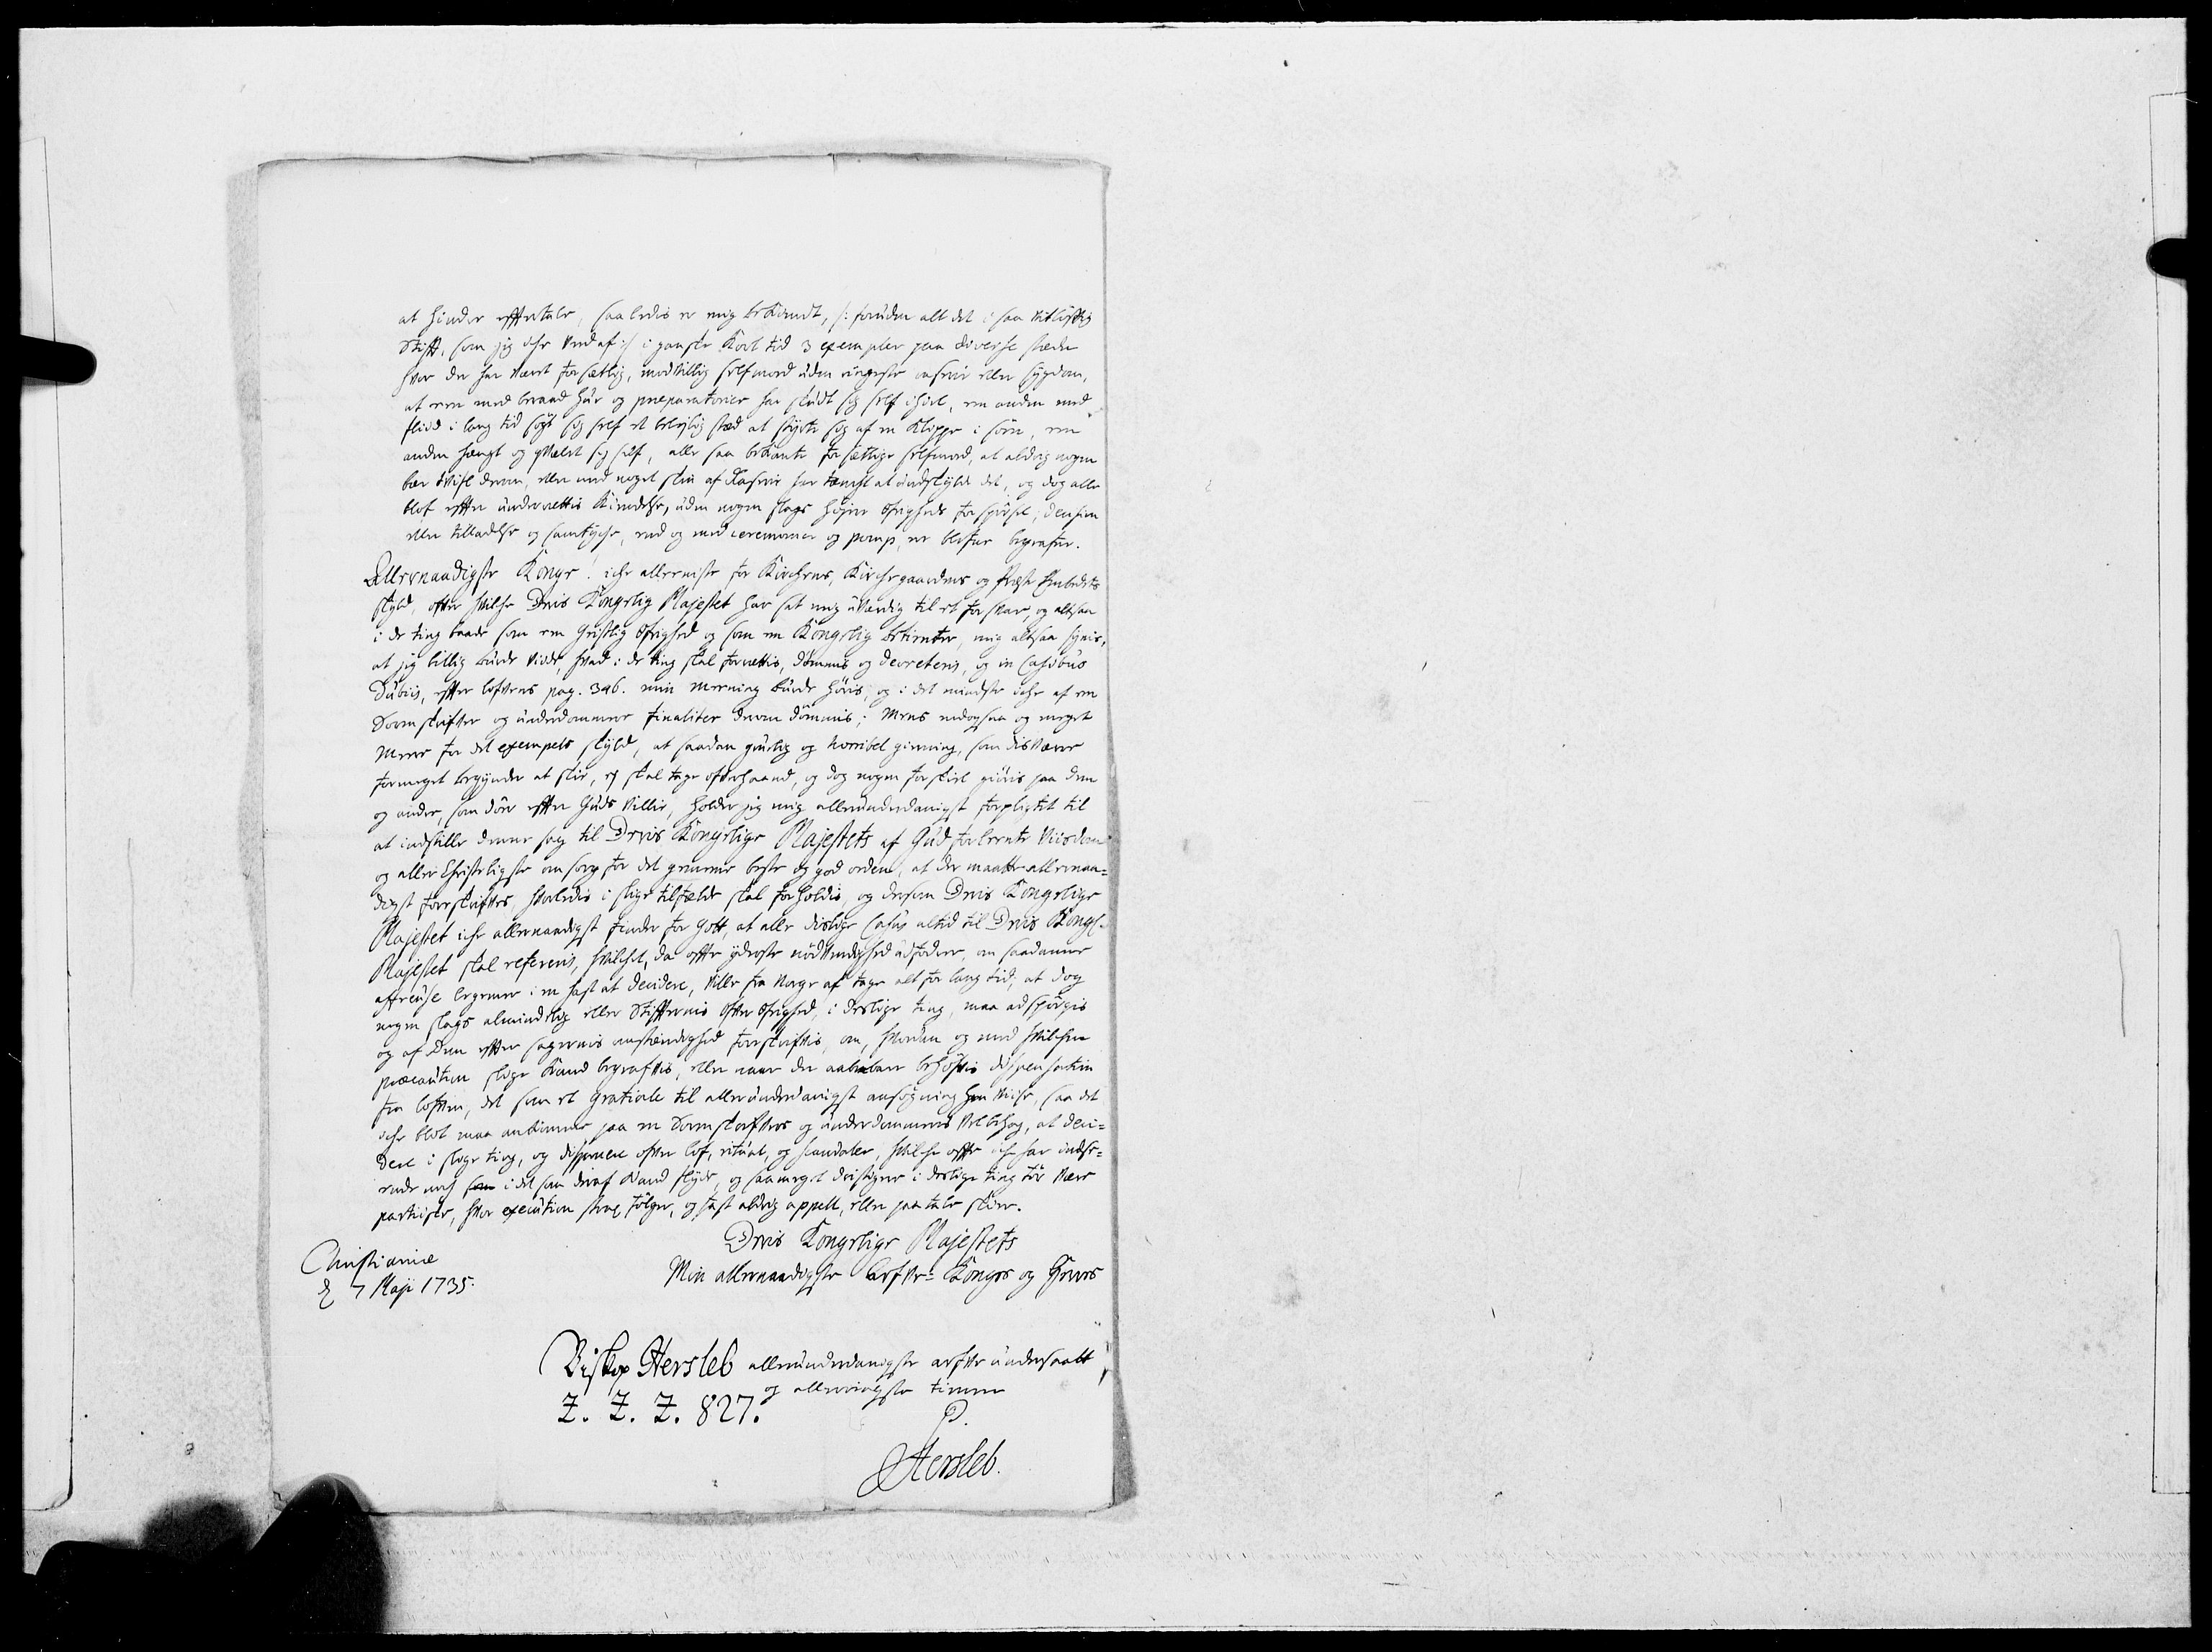 at hindre effertale, saaledis er mig bekandt, /: foruden alt det i saa vitløftig
Stift, som jeg ikke veed af :/ i ganske kort tid 3 exempler paa diverse stæder
hvor der har været forsætlig, modvillig selfmord uden ringeste raserie eller sygdom,
at een med beraad hur og præparatorier har skudt sig self ihiel, en anden med
fliid i lang tid søgt sig self et beleylig stæd at styrte sig af en klippe i søen, en
anden hængt og qvælt sig self, alle saa bekante forsætlige selfmord, at aldrig nogen
bær tvifl derom, eller med noget skin af Raserie har tænckt at undskylde det, og dog alle
blot efter underrettis kiendelse, uden nogen slags høyere øfrigheds forspørsel, Dension
eller tilladelse og samtycke, end og med ceremonier og pomp, er blefne begrafne.
Allernaadigste Konge! icke alleniste for Kirckens, Kirckegaardens og Præste Embedets
skyld, ofver hvilke Deris Kongelig Majestet har sat mig uværdig til et forsvar, og altsaa
i de ting baade som een Geistlig øfrighed og som en Kongelig betienter, mig altsaa synis,
at jeg billig burde vide, hvad i de ting skal forrettis, dømmis og decreteris, og in Casibus
Dubiis, efter lofvens pag. 396. min meening burde høris, og i det mindste icke af en
Sorenskrifver og underdommer finaliter derom dømmis; Mens endogsaa og meget
meere for det exempels skyld, at saadan gruelig og horribel gierning, som disværre
formeget begynder at skee, ey skal tage ofverhaand, og dog nogen forskiel giøris paa dem
og andre, som døer efter Guds villie, holder jeg mig allerunderdanigst forpligtet til
at indstille denne sag til Deris Kongelige Majestets af Gud forleente Viisdom
og aller Christeligste omsorg for det gemene beste og god orden, at der maatte allernaa=
digst forreskrifves, hvorledis i slige tilfælde skal forholdis, og dersom Deris Kongelige
Majestet icke allernaadigst finder for gott, at alle dislige Casus altid til Deris Kongl.
Majestet skal refereris, hvilcket, da ofte yderste nødvendighed udfodrer, om saadanne
affreuse legemer i en hast at decidere, ville fra Norge af tage alt for lang tid, at dog
nogen slags almindelig eller Stifternis Ofver Øfrighed, i deslige ting, maa adspørgis
og af dem efter sagernis omstændighed forreskrifvis, om, hvordan og med hvilcken
præcaution slige kand begrafvis, eller naar der aabenbare behøfvis dispensation
fra lofven, det som et gratiale til allerunderdanigst ansøgning hen viise, saa det
icke blot maa ankomme paa en Sorenskrifvers og underdommers velbehag, at deci=
dere i slige ting, og disponere ofver lof, ritual, og skandaler, hvilcke ofte icke har indse=
ende med i det som deraf kand flyde, og saameget dristigere i deslige ting tør være
partiiske, hvor execution strax følger, og fast aldrig appell, eller paatale skeer.
Deris Kongelige Majestets
Min allernaadigste Arfve= Konges og Herres
Christianiæ
d 7 Maji 1735.
Biskop Hersleb allerunderdanigste arfve undersaatt
og allerringeste tienner
Z. Z. Z. 827.
P.
Hersleb.